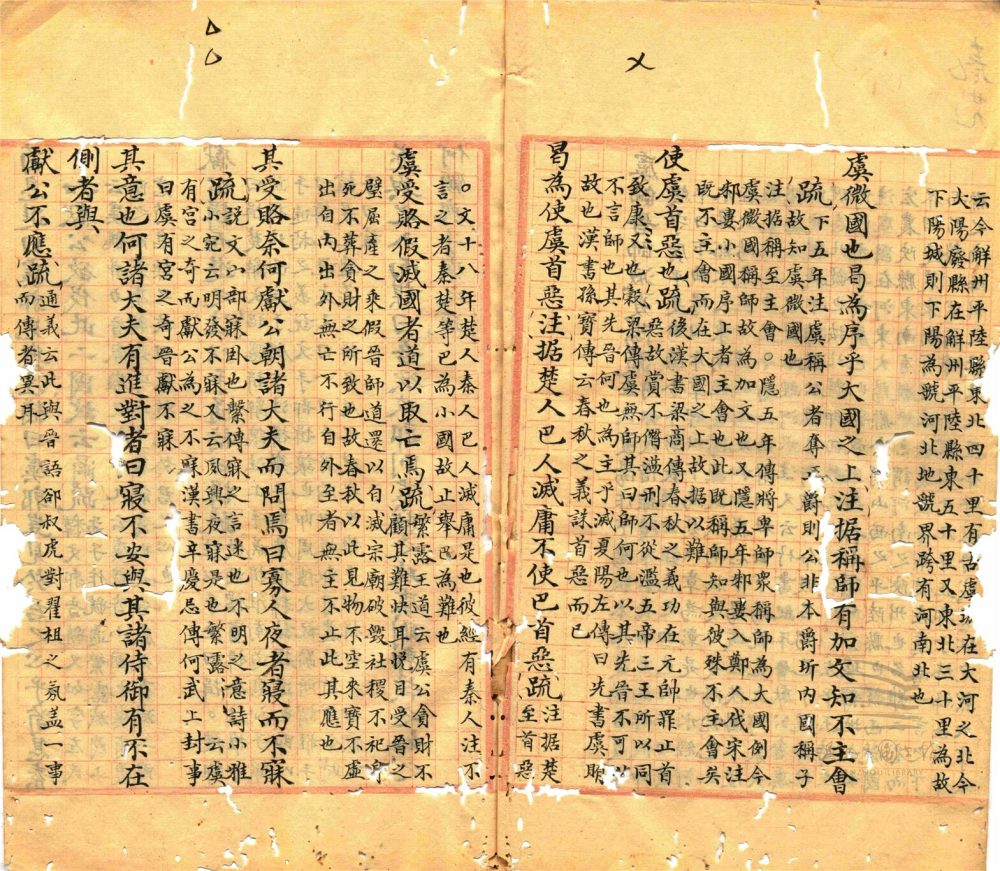 云今解州平陸縣東北四十里有古虞城在大河之北今
大陽廢縣在解州平陸縣東五十里又東北三十里為故
下陽城則下陽為虢河北地虢界跨有河南北也
虞微國也曷為序乎大國之上注据稱師有加文知不主會
疏下五年注虞稱公者奪正爵則公非本爵圻內國稱子
故知虞微國也
注据稱至主會。隱五年傳將卑師眾稱師為大國例今
虞微國稱師故為加文也又隱五年邾婁入鄭人伐宋注
邾婁小國序上者主會也此既稱師知與彼殊不主會矣
既不主會而在大國之上故据以難
使虞首惡也疏後漢書梁商傳春秋之義功在元帥罪止首
惡故賞不僭溢刑不從濫五帝三王所以同
致康乂也穀梁傳虞無師其曰師何也以其先晉不可以
不言師也其先晉何也為主乎滅夏陽左傳曰先書虞賄
故也漢書孫寶傳云春秋之義誅首惡而已
曷為使虞首惡注据楚人巴人滅庸不使巴首惡疏注据楚
至首惡
。文十八年楚人秦人巴人滅庸是也彼經有秦人注不
言之者秦楚等巴為小國故止舉巴為難也
虞受賂假滅國者道以取亡焉疏繁露王道云虞公貪財不
顧其難快耳悅目受晉之
璧屈產之乘假晉師道還以自滅宗廟破毀社稷不祀身
死不葬貪財之所致也故春秋以此見物不空來寶不虛
出自內出外無亡不行自外至者無主不止此其應也
其受賂奈何獻公朝諸大夫而問焉曰寡人夜者寢而不寐
疏說文㝱部寐臥也繫傳寐之言迷也不明之意詩小雅
小宛云明發不寐又云夙興夜寐是也繁露云虞
有宮之奇而獻公為之不寐漢書辛慶忌傳何武上封事
曰虞有宮之奇晉獻不寐
其意也何諸大夫有進對者曰寢不安與其諸侍御有不在
側者與
獻公不應疏通義云此與晉語郤叔虎對翟柤之氛蓋一事
而傳者異耳